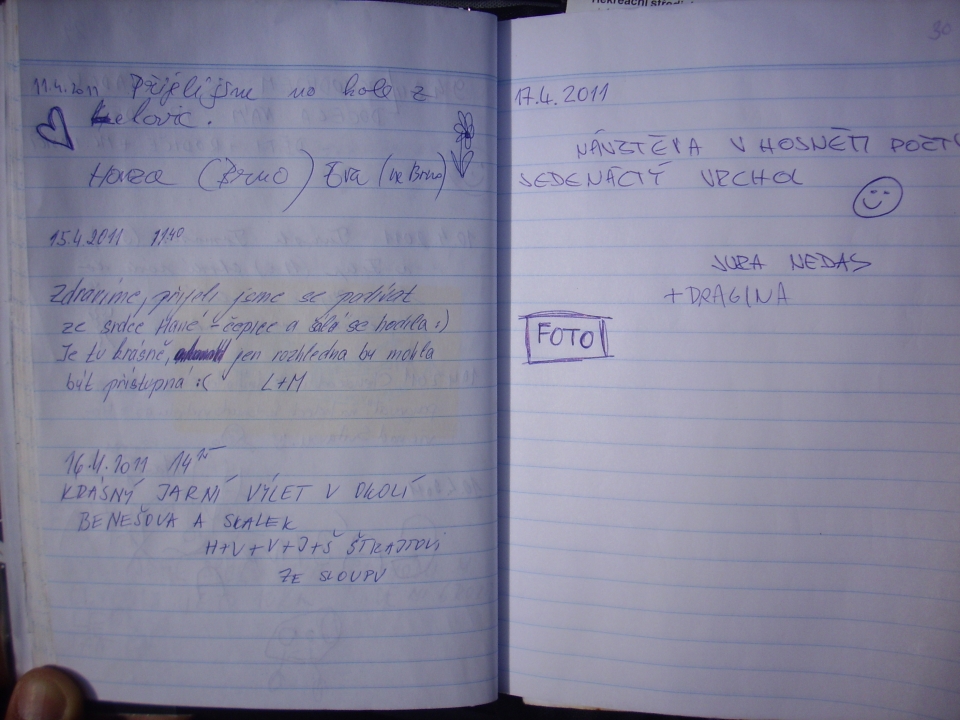 11.4.2011 Přijeli jsme na kole z
elovic.
Honza (Brno) Eva (ne Brno)
15.4.2011 11:40
Zdravíme, přijeli jsme se podívat
ze srdce Hané - čepice a šála se hodila :)
Je tu krásně, jen rozhledna by mohla
být přístupná :( L+M
16.4.2011 14
KRÁSNÝ JARNÍ VÝLET V OKOLÍ
BENEŠOVA A SKALEK
H+V+V+J+Š
ZE SLOUPU
30
17.4.2011
NÁVŠTĚVA V HOSNĚTÍ
SEDENÁCTÝ VRCHOL
JURA NEDAS
+DRAGINA
FOTO